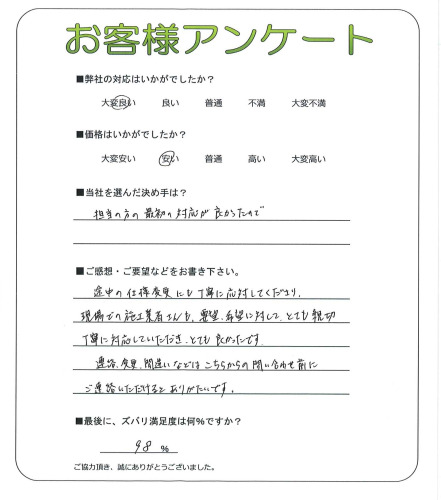 お客様アンケート
■弊社の対応はいかがでしたか？
大変良い 良い 普通 不満 大変不満
■価格はいかがでしたか？
大変安い 安い 普通 高い 大変高い
■当社を選んだ決め手は？
担当の方の最初の対応が良かったので
■ご感想・ご要望などをお書き下さい。
途中の仕様変更にも丁寧に応対してくださり、
現場での施工業者さんも、要望、希望に対して、とても親切
丁寧に対応していただき、とても良かったです。
連絡、変更、間違いなどはこちらからの問い合わせ前に
ご連絡いただけるとありがたいです。
■最後に、ズバリ満足度は何%ですか？
98 %
ご協力頂き、誠にありがとうございました。